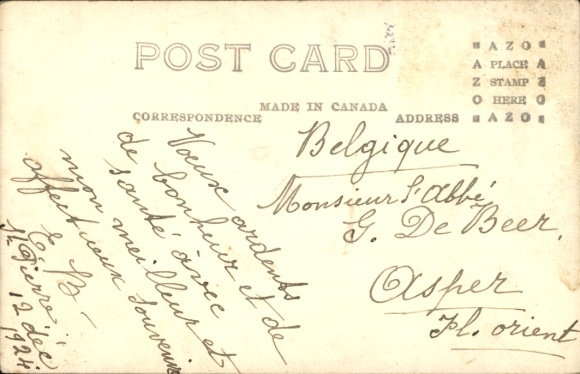 POST CARD
AZO
A PLACE A
Z STAMP Z
O HERE O
AZO
MADE IN CANADA
CORRESPONDENCE
ADDRESS
Voeux ardents
de bonheur et de
santé avec
mon meilleur et
affectueux souvenir
E. B.
St Pierre
12 déc
1924
Belgique
Monsieur l'Abbé
G. De Beer,
Asper
Fl. orient